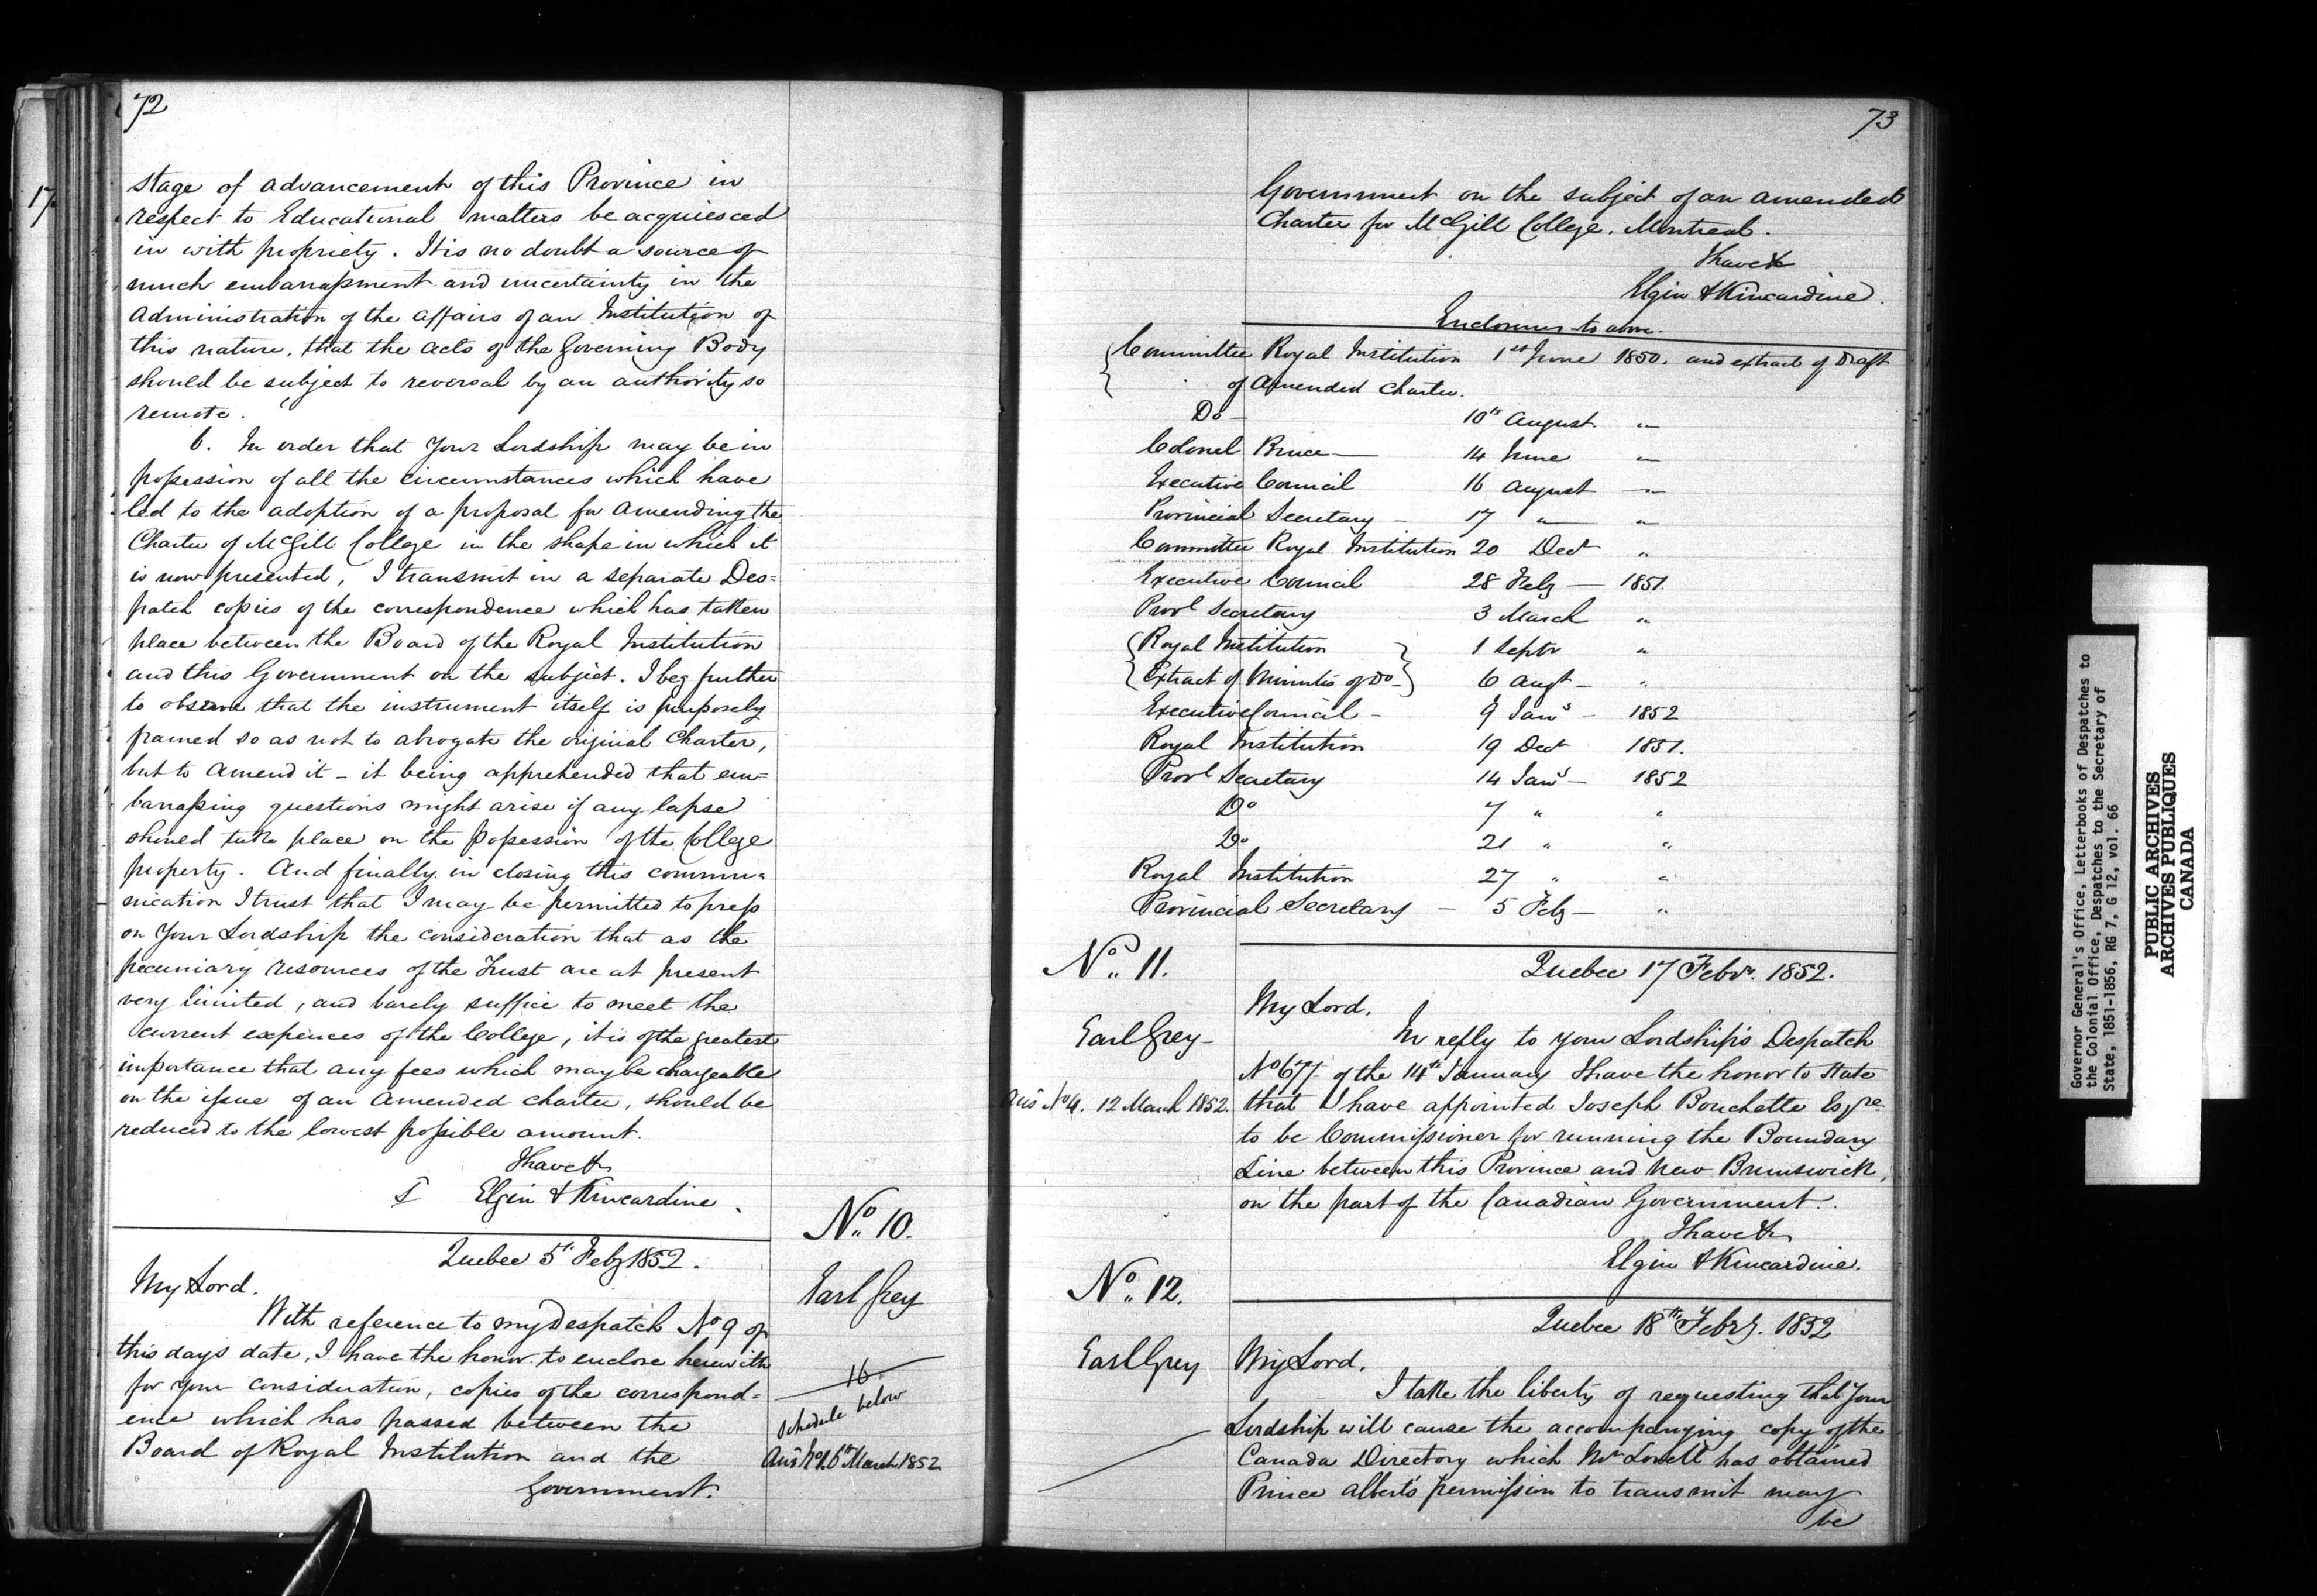 72
17
stage of advancement of this Province in
respect to Educational matters be acquiesced
in with propriety. It is no doubt a source of
much embarrassment and uncertainty in the
Administration of the affairs of an Institution of
this nature, that the acts of the Governing Body
should be subject to reversal by an authority so
remote.
6. In order that Your Lordship may be in
possession of all the circumstances which have
led to the adoption of a proposal for amending the
Charter of McGill College in the shape in which it
is now presented, I transmit in a separate Des=
patch copies of the correspondence which has taken
place between the Board of the Royal Institution
and this Government on the subject. I beg further
to observe that the instrument itself is purposely
framed so as not to abrogate the original Charter,
but to amend it - it being apprehended that em=
barrassing questions might arise if any lapse
should take place on the possession of the College
property. And finally in closing this commu=
nication I trust that I may be permitted to press
on Your Lordship the consideration that as the
pecuniary resources of the Trust are at present
very limited, and barely suffice to meet the
current expences of the College, it is of the greatest
importance that any fees which may be chargeable
on the issue of an Amended Charter, should be
reduced to the lowest possible amount.
I have &c
Elgin & Kincardine.
No. 10.
Quebec 5th Feby 1852.
Earl Grey
My Lord.
With reference to my Despatch No 9 of
this days date, I have the honor to enclose herewith
for your consideration, copies of the correspond=
ence which has passed between the
Board of Royal Institution and the
Government.
16
Schedule below
6th March 1852
73
Government on the subject of an amended
Charter for McGill College, Montreal.
I have &c
Elgin & Kincardine.
Enclosures to above.
Committee Royal Institution 1st June 1850. and extract of Draft
of Amended Charter.
Do - 10th August. "
Colonel Bruce — 14 June "
Executive Council 16 August "
Provincial Secretary - 17 " "
Committee Royal Institution 20 Decr "
Executive Council 28 Feby — 1851.
Provl Secretary 3 March "
Royal Institution 1 Septr "
Extract of Minutes of Do - 6 Augt - "
Executive Council - 9 Jany - 1852
Royal Institution 19 Decr 1851.
Provl Secretary 14 Jany - 1852
Do 7 " "
Do 21 " "
Royal Institution 27 " "
Provincial Secretary - 5 Feby - "
No. 11.
Quebec 17 Febry. 1852.
My Lord.
Earl Grey -
In reply to your Lordship's Despatch
No 677 of the 14th January I have the honor to state
Ans No 4. 12 March 1852.
that I have appointed Joseph Bouchette Esqre
to be Commissioner for running the Boundary
Line between this Province and New Brunswick,
on the part of the Canadian Government.
I have &c
Elgin & Kincardine.
No. 12.
Quebec 18th Febry. 1852
Earl Grey
My Lord.
I take the liberty of requesting that Your
Lordship will cause the accompanying copy of the
Canada Directory which Mr Lovell has obtained
Prince Albert's permission to transmit may
be
Governor General's Office, Letterbooks of Despatches to
the Colonial Office, Despatches to the Secretary of
State, 1851-1856, RG 7, G 12, vol. 66
PUBLIC ARCHIVES
ARCHIVES PUBLIQUES
CANADA